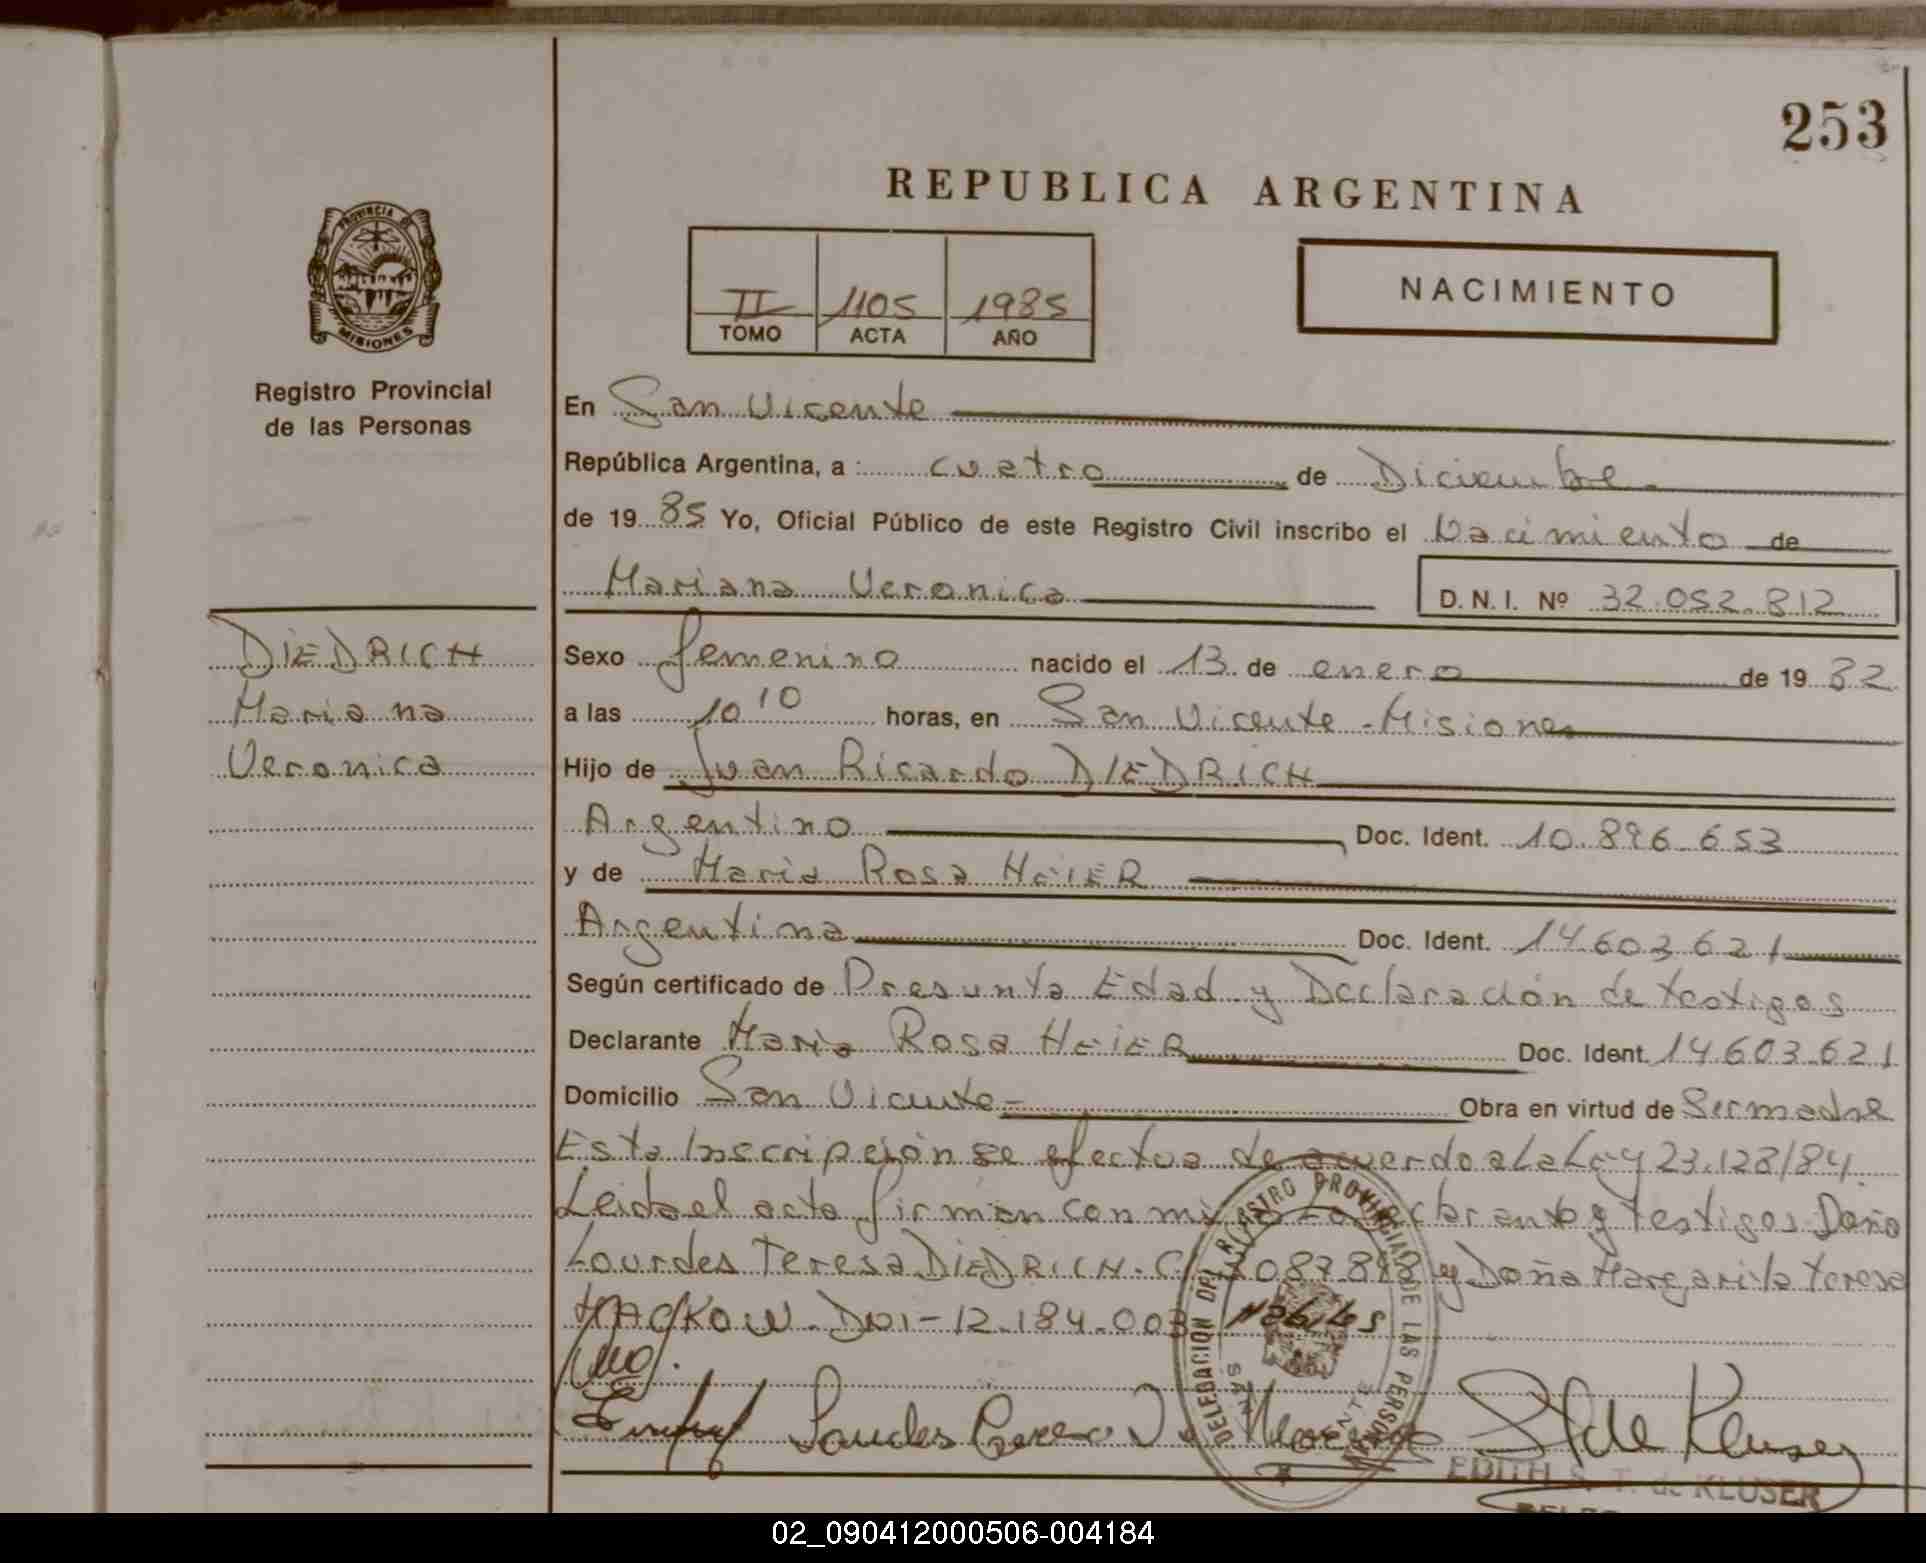 253
REPUBLICA ARGENTINA
PROVINCIA DE
MISIONES
II 1105 1985
TOMO ACTA AÑO
NACIMIENTO
Registro Provincial
de las Personas
En San Vicente
República Argentina, a : cuatro de Diciembre
de 19 85 Yo, Oficial Público de este Registro Civil inscribo el Nacimiento de
Mariana Veronica D. N. I. Nº 32.052.812
DIEDRICH
Mariana
Veronica
Sexo femenino nacido el 13 de enero de 19 82
a las 10 10 horas, en San Vicente - Misiones
Hijo de Juan Ricardo DIEDRICH
Argentino Doc. Ident. 10.896.653
y de Maria Rosa HEIER
Argentina Doc. Ident. 14.603.621
Según certificado de Presunta Edad y Declaración de testigos
Declarante Maria Rosa HEIER Doc. Ident. 14.603.621
Domicilio San Vicente - Obra en virtud de Ser madre
Esta Inscripción se efectua de acuerdo a la Ley 23.128/84
Leida el acta firman con migo la declarante y testigos Doña
Lourdes Teresa DIEDRICH - y Doña Margarita Teresa
DNI - 12.184.003
DELEGACION DEL REGISTRO PROVINCIAL DE LAS PERSONAS
SAN VICENTE
MISIONES
EDITH S. T. de KLUSER
02_090412000506-004184